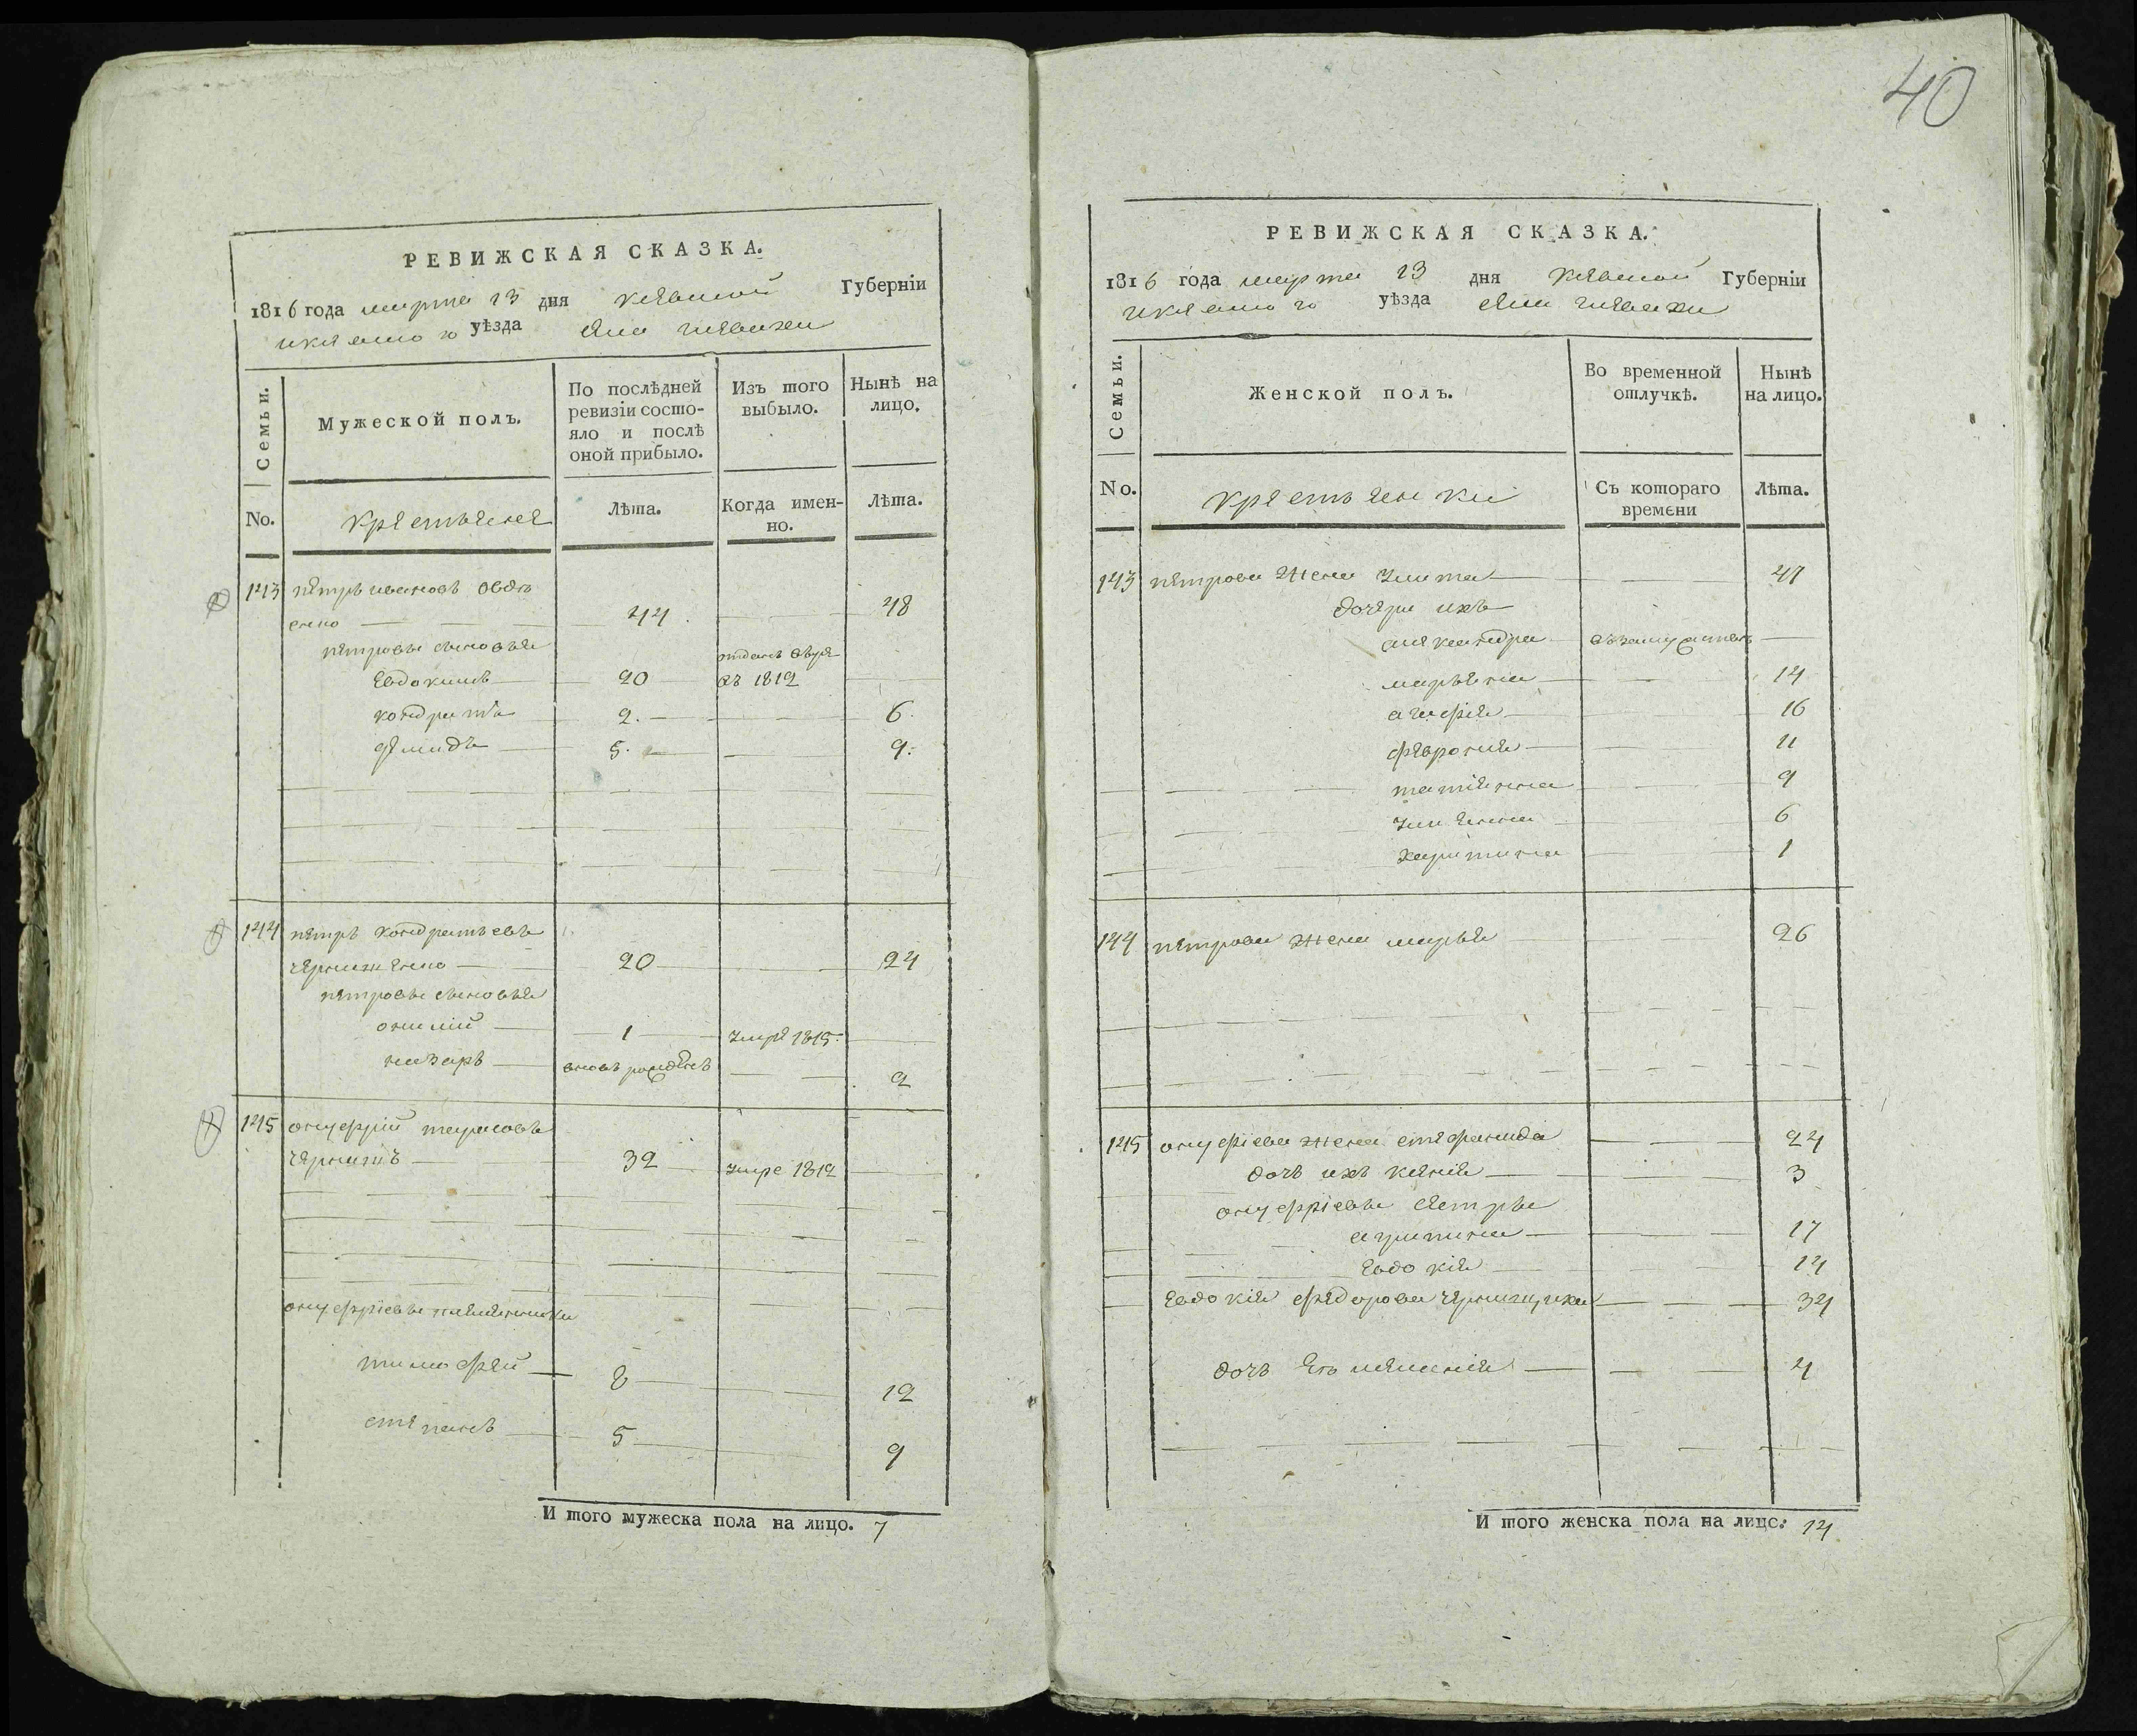 40
РЕВИЖСКАЯ СКАЗКА.
1816 года марта 13 дня киевской Губерніи
уѣзда села
Семьи.
Мужеской полъ.
По послѣдней ревизіи состо-
яло и послѣ
оной прибыло.
Изъ того
выбыло.
Нынѣ на
лицо.
No.
крестьяне
Лѣта.
Когда имен-
но.
Лѣта.
143 петръ ивановъ
44 48
петровы сыновья
отданъ
Евдокимъ 20 въ 1812
кондратъ 2. 6.
демидъ 5. 9.
144 петръ кондратьевъ
20 24
петровы сыновья
1 умре 1815.
назаръ вновь рожденъ 2
145 онуфрій тарасовъ
32 умре 1812
онуфріевы племянники
тимофей 8 12
степанъ 5 9
И того мужеска пола на лицо. 7
РЕВИЖСКАЯ СКАЗКА.
1816 года марта 13 дня киевской Губерніи
уѣзда села
Семьи.
Женской полъ.
Во временной
отлучкѣ.
Нынѣ
на лицо.
No.
крестьянки
Съ котораго
времени
Лѣта.
143 петрова жена 47
дочери ихъ
александра
марьяна 14
агафія 16
февронія 11
татіянна 9
ульянна 6
харитина 1
144 петрова жена марья 26
145 онуфріева жена стефанида 24
дочь ихъ ксенія 3
онуфріевы сестры
агрипина 17
Евдокія 14
Евдокія федорова 34
дочь Ея меланія 4
И того женска пола на лицо: 14